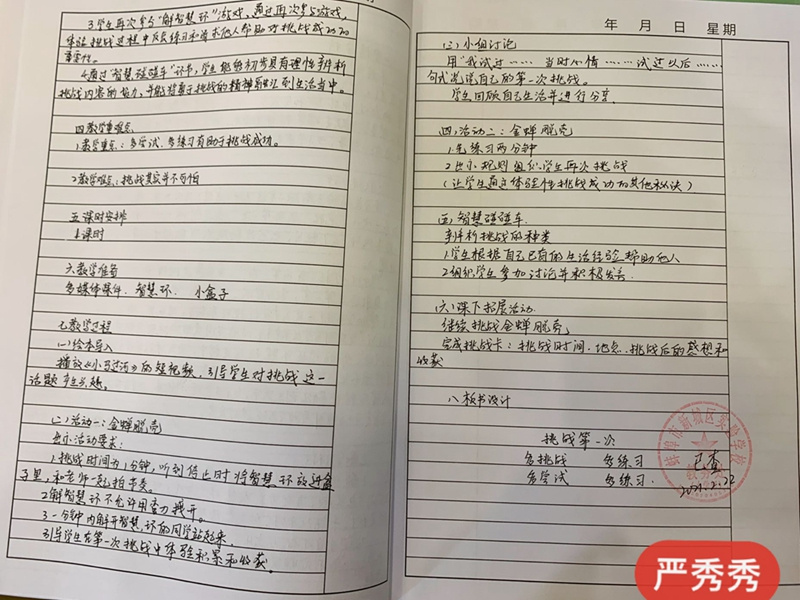 3.学生再次参与“解智慧环”游戏,通过再次参与游戏,
体验挑战过程中反复练习和寻求他人帮助对挑战成功的
重要性。
4.通过“智慧碰碰车”环节,学生能够初步具有理性辨析
挑战内容的能力,并能将勇于挑战的精神延让到生活当中。
四教学重难点
1教学重点:多尝试、多练习有助于挑战成功。
2教学难点:挑战其实并不可怕
五课时安排
1课时
六教学准备
多媒体课件、智慧环、小盒子
七教学过程
(一)绘本导入
播放《小马过河》的短视频,引导学生对挑战这一
话题产生兴趣。
(二)活动一:金蝉脱壳
出示活动要求:
1.挑战时间为1分钟,听到停止时将智慧环放进盒
子里,和老师一起拍节奏。
2解智慧环不允许用蛮力拽开。
3一分钟内解开智慧环的同学站起来
引导学生在第一次挑战中体验积累和收获。
年 月 日 星期
(三)小组讨论
用“我试过…… 当时心情…… 试过以后……
句式说说自己的第一次挑战。
学生回顾自己生活并进行分享
四、活动二:金蝉脱壳
1.先练习两分钟
2出示规则组织学生再次挑战
(让学生通过体验性挑战成功的其他秘诀)
(五)智慧碰碰车
辨析挑战的种类
1学生根据自己已有的生活经验帮助他人
2组织学生参加讨论并积极发言
(六)课下拓展活动
继续挑战金蝉脱壳
完成挑战卡:挑战时间、地点、挑战后的感想和
收获
八板书设计
挑战第一次
多挑战 多练习
多尝试 多练习
蚌埠市新城区实验学校
已查
2021.2.22
严秀秀